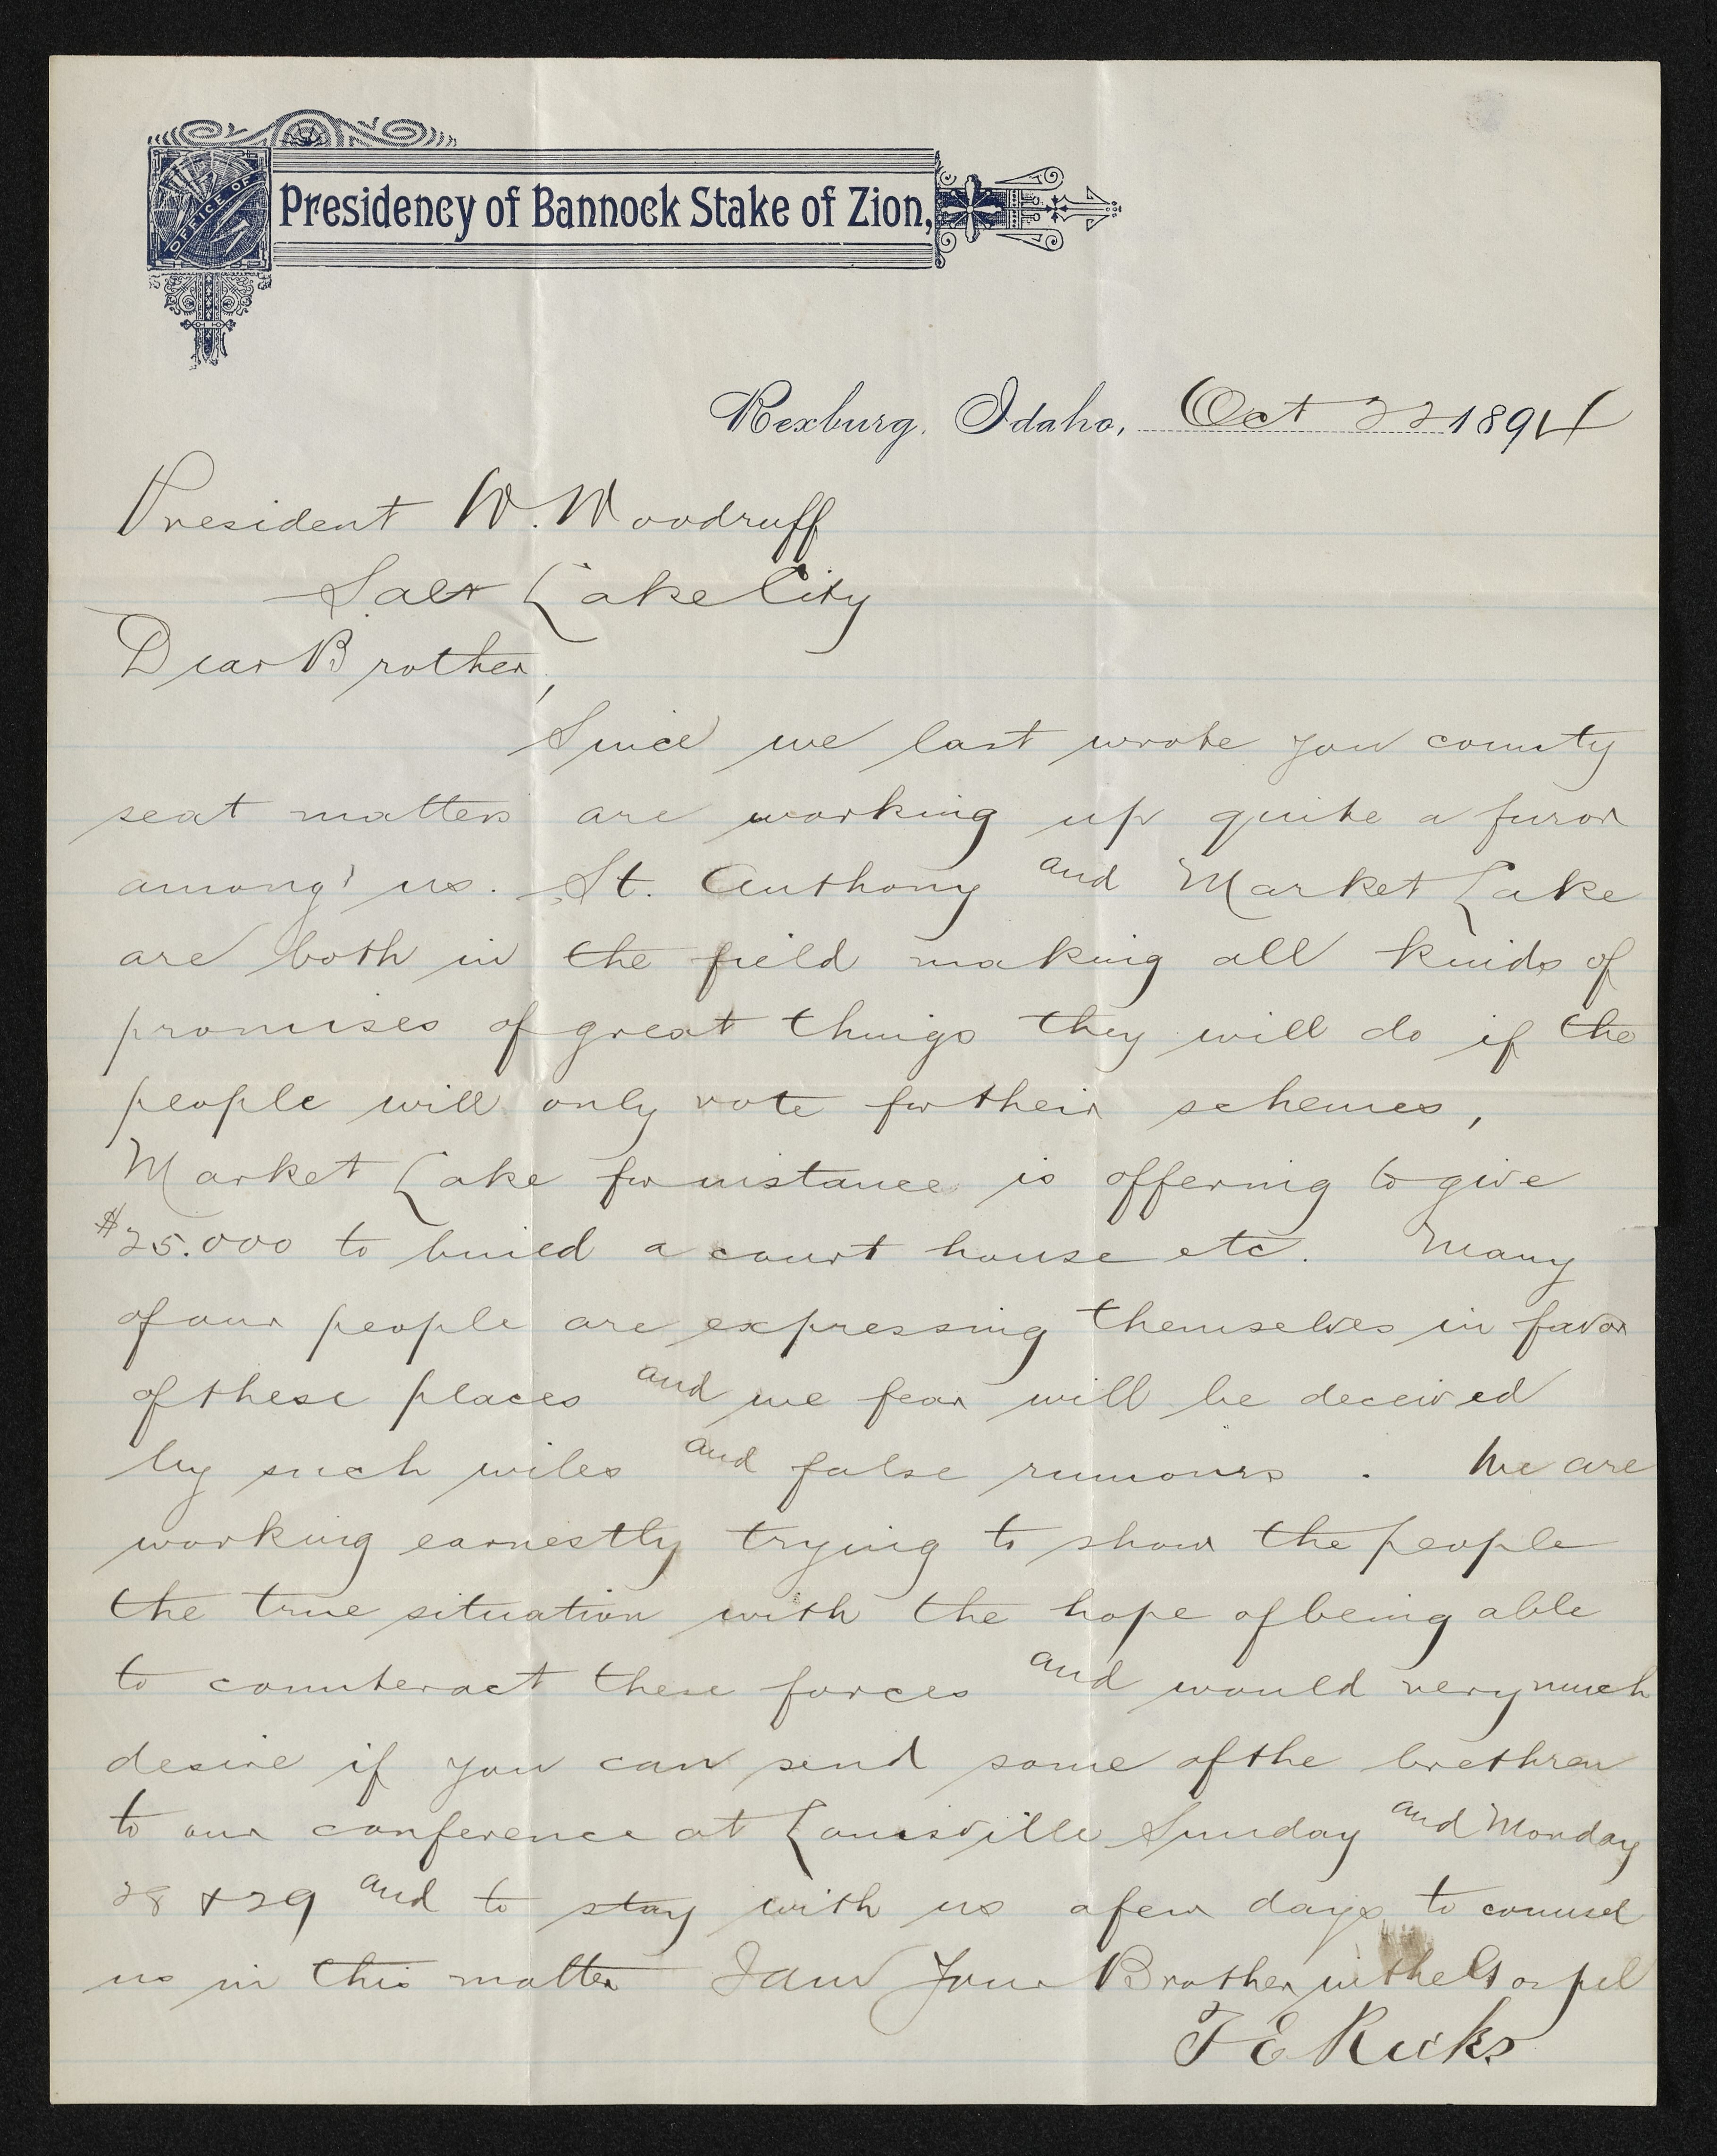 OFFICE OF
Presidency of Bannock Stake of Zion,
Rexburg, Idaho, Oct 22 1894
President W. Woodruff
Salt Lake City
Dear Brother,
Since we last wrote you county
seat matters are working up quite a furor
among' us. St. Anthony and Market Lake
are both in the field making all kinds of
promises of great things they will do if the
people will only vote for their schemes,
Market Lake for instance is offering to give
$25.000 to build a court house etc. Many
of our people are expressing themselves in favor
of these places and we fear will be deceived
by such wiles and false rumours. We are
working earnestly trying to show the people
the true situation with the hope of being able
to counteract these forces and would very much
desire if you can send some of the brethren
to our conference at Louisville Sunday and Monday
28 & 29 and to stay with us a few days to counsel
us in this matter I am Your Brother in the Gospel
T E Ricks